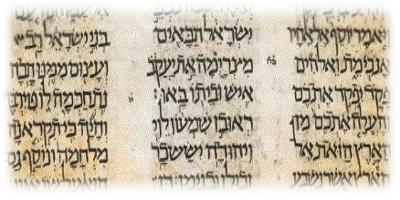 ויאמר יוסף אל אחיו
אנכי מת ואלהים
פקד יפקד אתכם
והעלה אתכם מן
הארץ הזאת אל
הארץ אשר נשבע
ישראל הבאים
מצרימה את יעקב
איש וביתו באו
ראובן שמעון לוי
ויהודה יששכר
זבולן ובנימן
בני ישראל רב
ועצום ממנו הבה
נתחכמה לו פן
והיה כי תקראנה
מלחמה ונוסף גם
הוא על